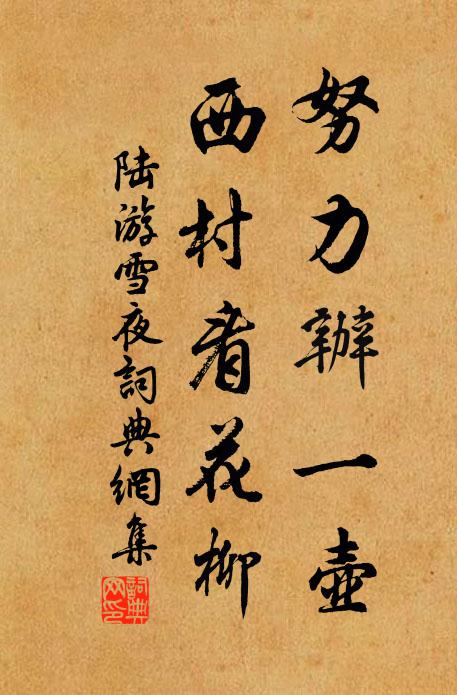 努力辦一壺
西村看花柳
陸游雪夜詞典網集
詞典網印